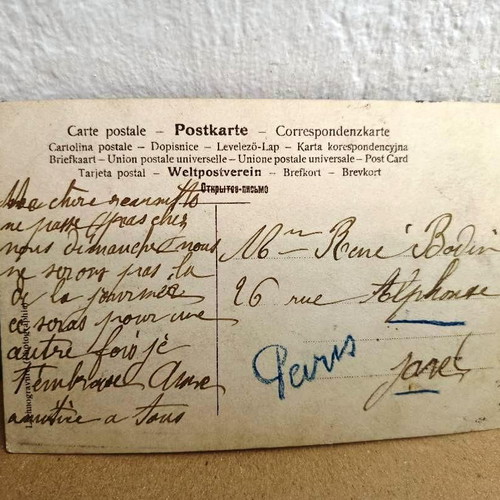 Carte postale – Postkarte – Correspondenzkarte
Cartolina postale – Dopisnice – Levelező-Lap – Karta korespondencyjna
Briefkaart – Union postale universelle – Unione postale universale – Post Card
Tarjeta postal – Weltpostverein – Brefkort – Brevkort
Открытое письмо
chere
ne passe pas cher
nous dimanche nous
ne serons pas la
de la journée
ce seras pour une
autre fois je
t'embrasse Anne
a tous
René Bodin
26 rue Alphonse
Paris